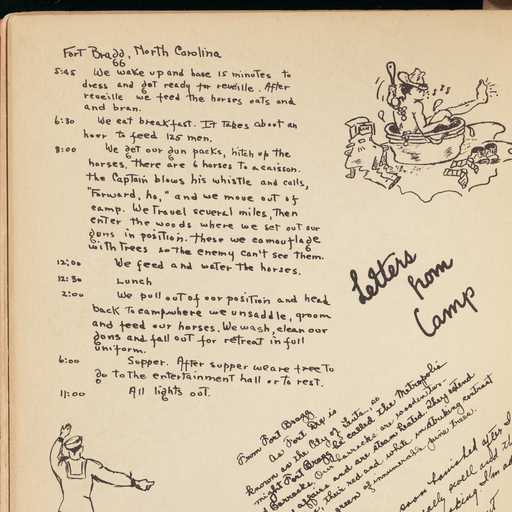 Fort Bragg, North Carolina
66
5:45 We wake up and have 15 minutes to
dress and get ready for reveille. After
reveille we feed the horses oats and
and bran.
6:30 We eat breakfast. It takes about an
hour to feed 125 men.
8:00 We get our gun packs, hitch up the
horses. there are 6 horses to a caisson.
the Captain blows his whistle and calls,
"Forward, ho," and we move out of
camp. We travel several miles, then
enter the woods where we set out our
guns in position. These we camouflage
with trees so the enemy can't see them.
12:00 We feed and water the horses.
12:30 Lunch
2:00 We pull out of our position and head
back to camp where we unsaddle, groom
and feed our horses. We wash, clean our
guns and fall out for retreat in full
uniform.
6:00 Supper. After supper we are free to
go to the entertainment hall or to rest.
11:00 All lights out.
zzz
Letters
from
Camp
From Fort Bragg
As Fort Dix is
known as the City of Tents, so
might Fort Bragg be called the Metropolis
Barracks. Our barracks are wooden two-
affairs and are steam heated. They extend
their red and white in striking contrast
green of innumerable pine trees.
soon vanished after I